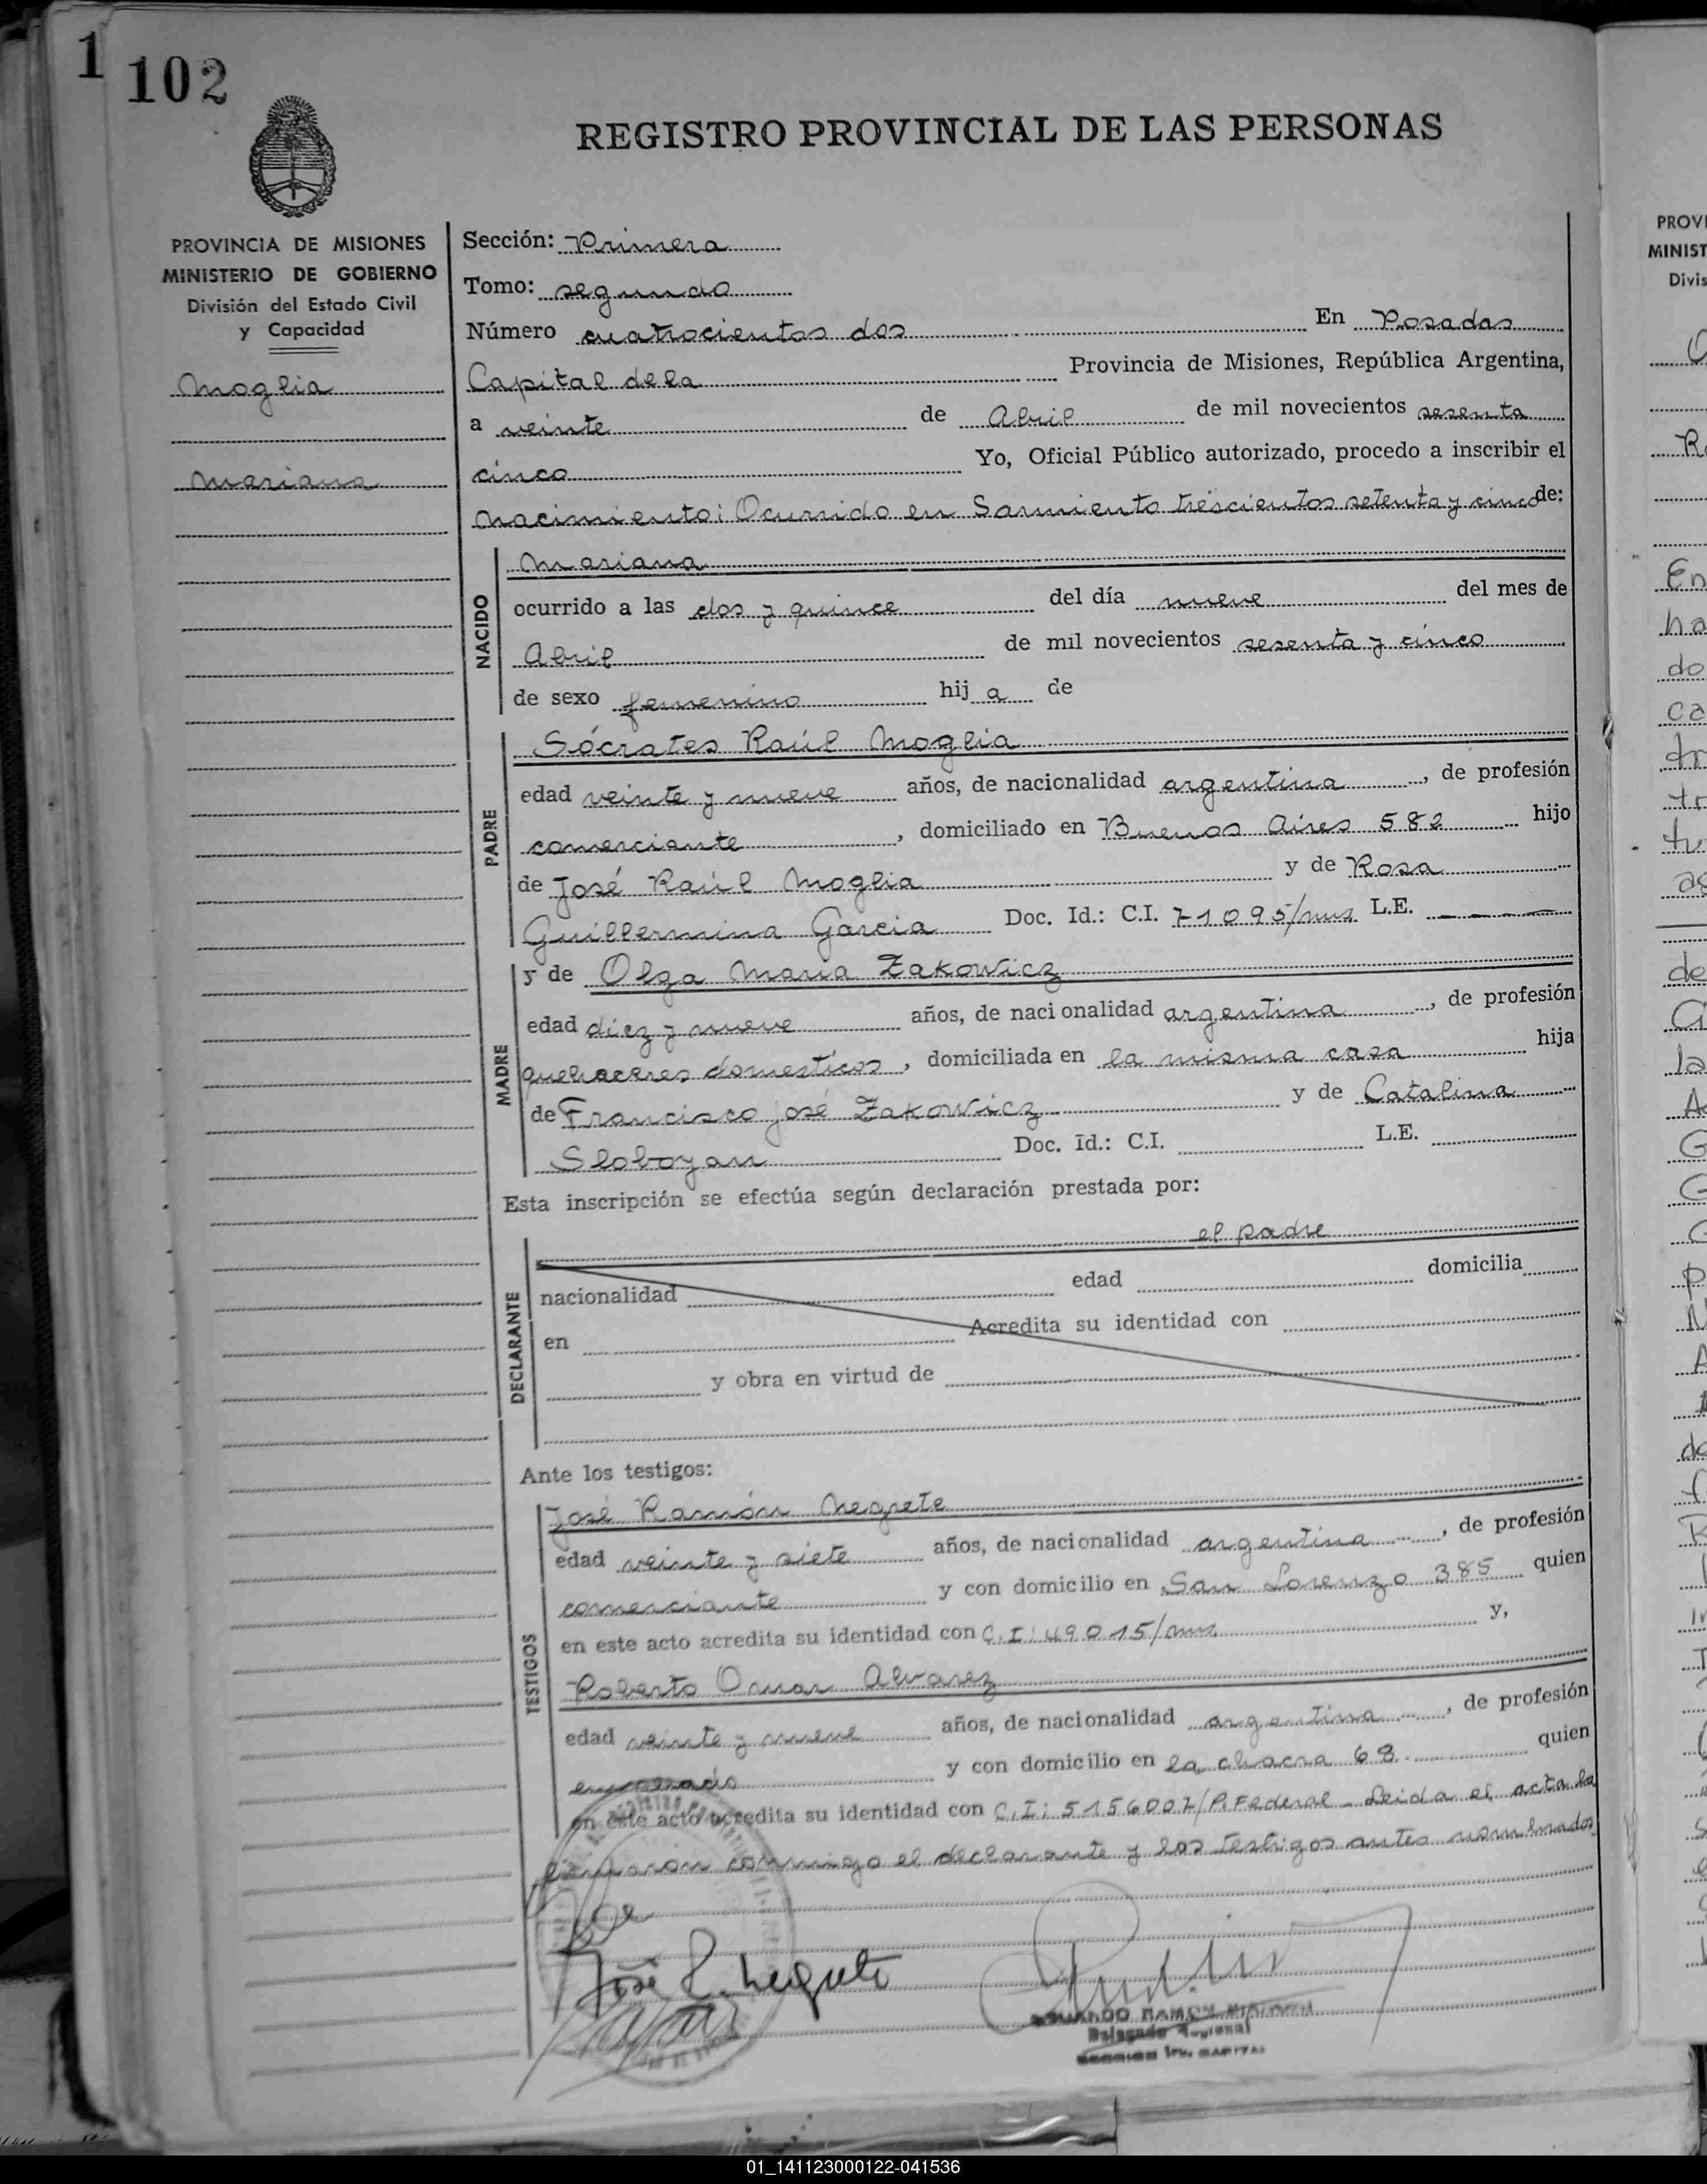 1
102
REGISTRO PROVINCIAL DE LAS PERSONAS
PROVINCIA DE MISIONES
MINISTERIO DE GOBIERNO
División del Estado Civil
y Capacidad
Moglia
Mariana
Sección: Primera
Tomo: segundo
Número cuatrocientos dos En Posadas
Capital de la Provincia de Misiones, República Argentina,
a veinte de Abril de mil novecientos sesenta
cinco Yo, Oficial Público autorizado, procedo a inscribir el
nacimiento: Ocurrido en Sarmiento trescientos setenta y cinco de:
NACIDO
Mariana
ocurrido a las dos y quince del día nueve del mes de
Abril de mil novecientos sesenta y cinco
de sexo femenino hij a de
PADRE
Sócrates Raúl Moglia
edad veinte y nueve años, de nacionalidad argentina, de profesión
comerciante, domiciliado en Buenos Aires 582 hijo
de José Raúl Moglia y de Rosa
Guillermina Garcia Doc. Id.: C.I. 71095/mns L.E.
MADRE
y de Olga Maria Zakowicz
edad diez y nueve años, de nacionalidad argentina, de profesión
quehaceres domesticos, domiciliada en la misma casa hija
de Francisco José Zakowicz y de Catalina
Sloboyan Doc. Id.: C.I. L.E.
Esta inscripción se efectúa según declaración prestada por:
DECLARANTE
el padre
nacionalidad edad domicilia
en Acredita su identidad con
y obra en virtud de
Ante los testigos:
TESTIGOS
José Ramón Negrete
edad veinte y siete años, de nacionalidad argentina, de profesión
comerciante y con domicilio en San Lorenzo 385 quien
en este acto acredita su identidad con C.I: 49015/mns. y,
Roberto Omar Alvarez
edad veinte y nueve años, de nacionalidad argentina, de profesión
empleado y con domicilio en la chacra 69 quien
en este acto acredita su identidad con C.I: 5156007/P.Federal - Leida el acta la
firmaron conmigo el declarante y los testigos antes nombrados
José R. Negrete
RAMON
Delegado Regional
01_141123000122-041536